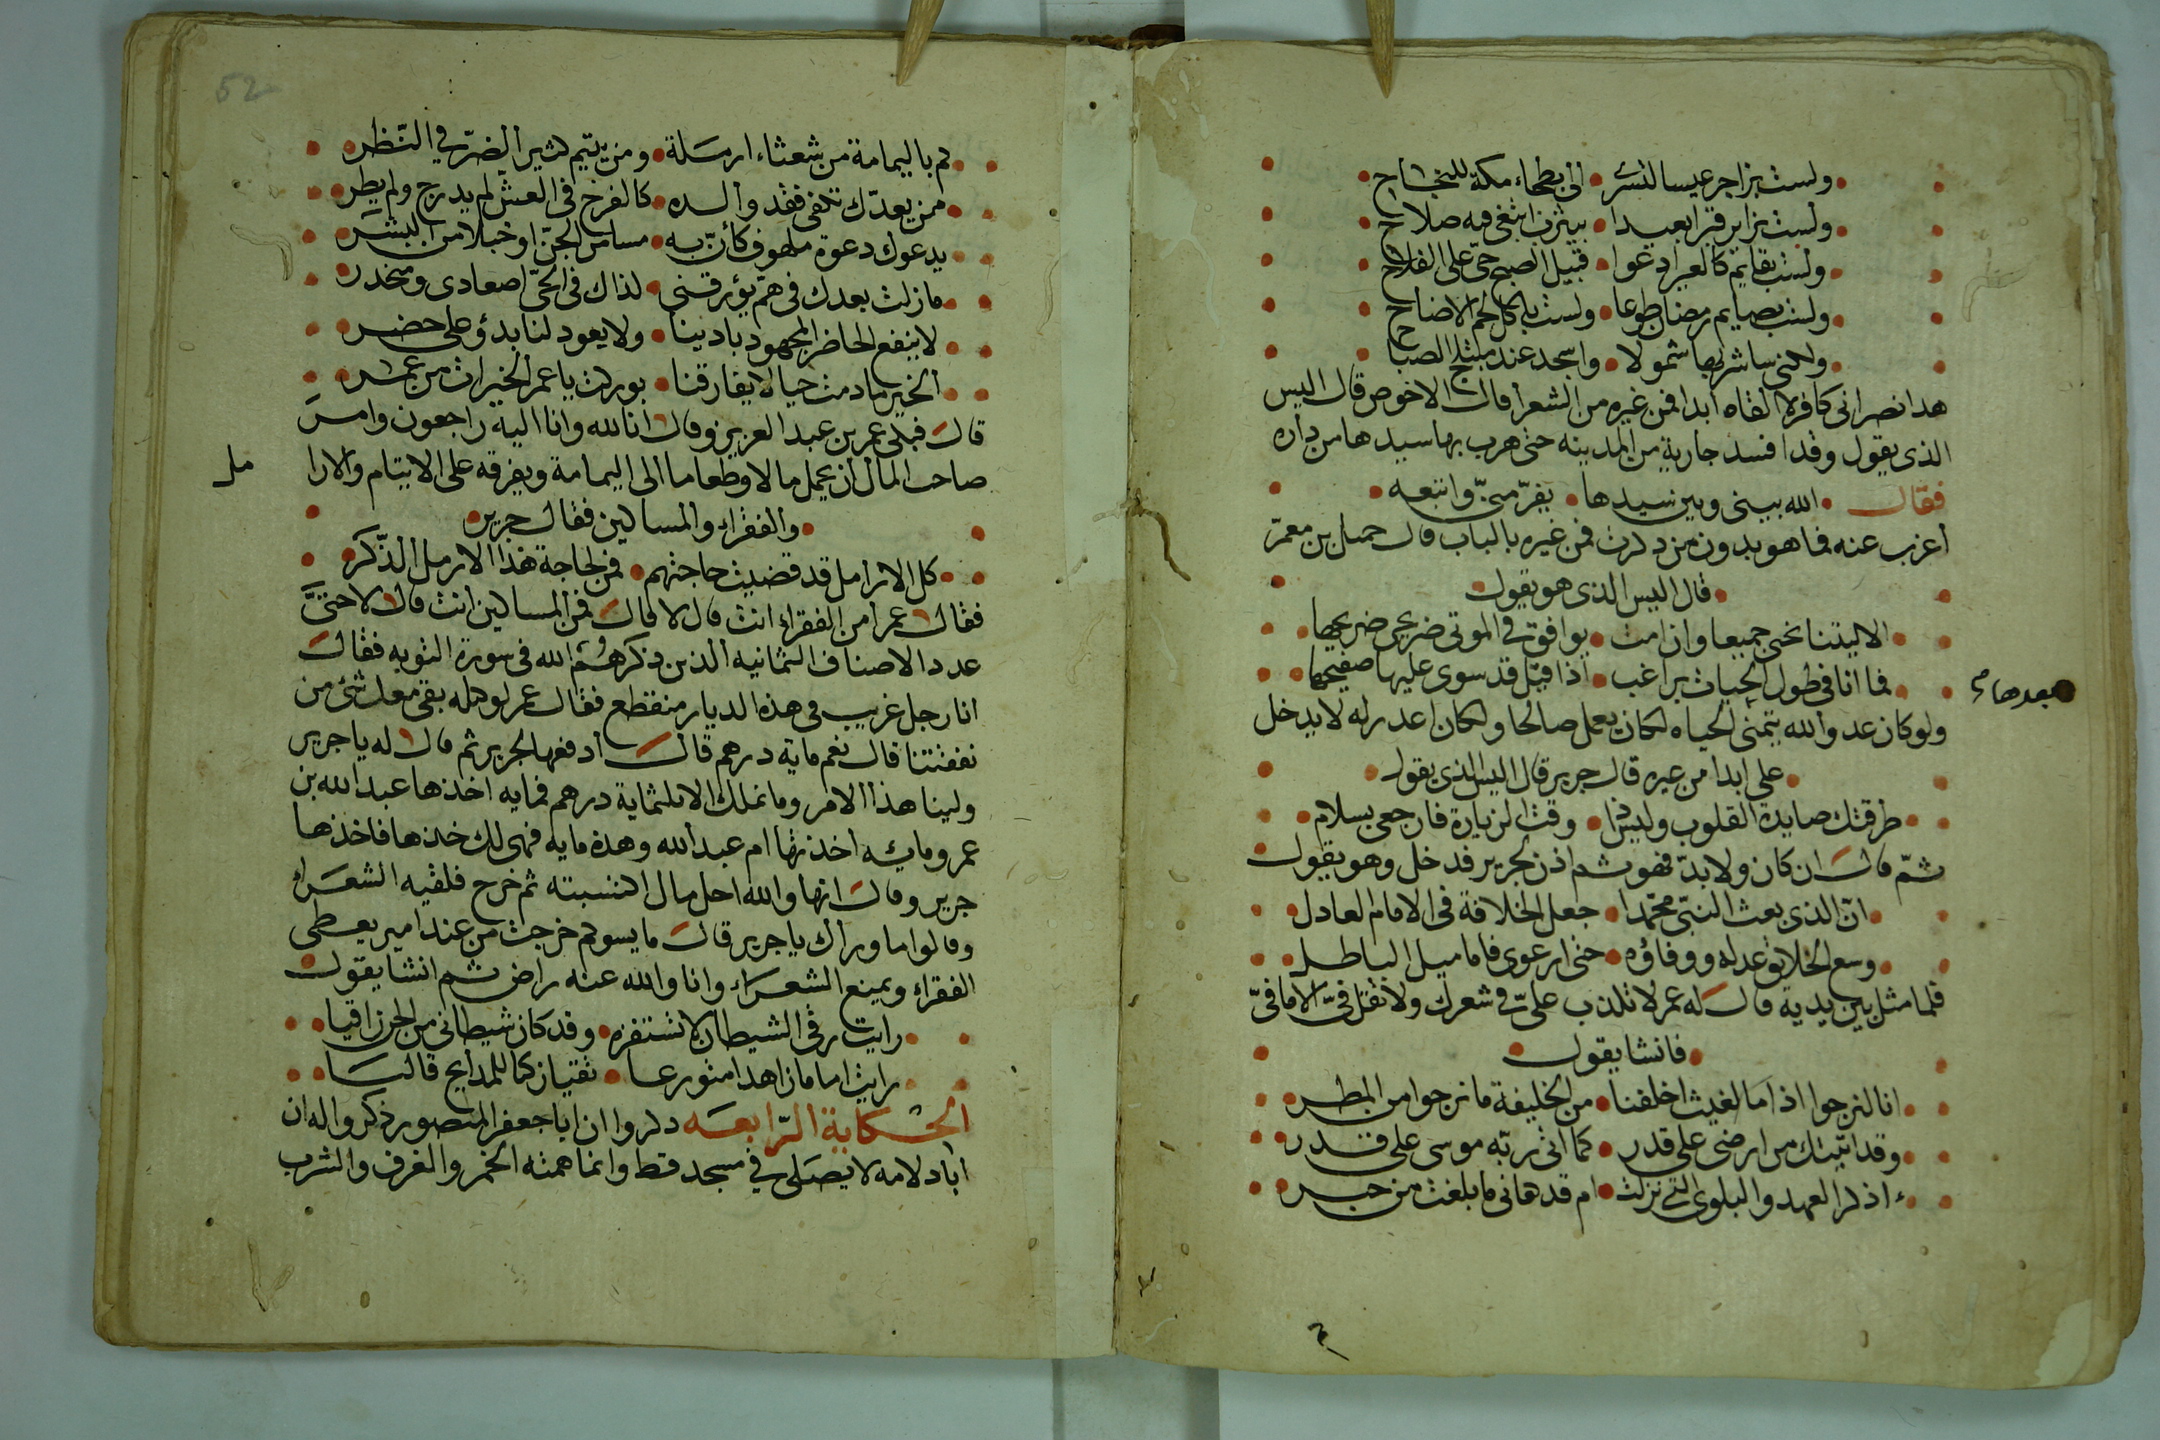 ولست بزاجر عيسا لتسري • الى بطحاء مكة للنجاح
ولست بزاير قبرا بعيدا • بيثرب ابتغي فيه صلاح
ولست بقايم كالعير ادعوا • قبيل الصبح حي على الفلاح
ولست بصايم رمضان طوعا • ولست باكل لحم الاضاح
ولكني ساشربها شمولا • واسجد عند مبتلج الصباح
هدا نصراني كافر لا القاه ابدا فمن غيره من الشعرأ قال الاخوص قال اليس
الذي يقول وقد افسد جارية من المدينه حتى هرب بها سيدها من داره
فقال • الله بيني وبين سيدها • يفر مني واتبعه •
اعزب عنه فما هو بدون من دكرت فمن غيره بالباب قال جميل بن معمر
• قال اليس الذي هو يقول •
الا ليتنا نحيى جميعا وان امت • يوافق في الموتى ضريحي ضريحها
فما انا في طول الحيات براغب • اذا قيل قد سوي عليها صفيحها
بعدها م
ولو كان عدو الله يتمنى الحياه لكان يعمل صالحا ولكان اعدر له لا يدخل
• علي ابدا من غيره قال جرير قال اليس الذي يقول
• طرقتك صايدة القلوب وليس ذا • وقت الزيارة فارجعي بسلام •
ثم قال ان كان ولا بد فهو ثم اذن لجرير فدخل وهو يقول
• ان الذي بعث النبي محمدا • جعل الخلافة في الامام العادل •
• وسع الخلايق عدله ووفاؤه • حتى ارعوى فاماميل الباطل
فلما مثل بين يديه قال له عمر لا تكذب علي في شعرك ولا تقل في الا ما في
• فانشا يقول •
• انا لنرجوا اذا ما الغيث اخلفنا • من الخليفة ما نرجوا من المطر •
• وقد اتيتك من ارضي على قدر • كما اتى ربه موسى على قدر •
• ءاذكر العهد والبلوى التي نزلت • ام قد هاني ما بلغت من خبر •
52
• كم باليمامة من شعثاء ارمسلة • ومن يتيم كثير الضر في النظر
• ممن يعدك تكفي فقد والده • كالفرخ في العش لم يدرج ولم يطر
• يدعوك دعوة ملهوف كأن به • مسا من الجن او خبلا من البشر
• ما زلت بعدك في هم يؤرقني • لذاك في الحي اصعادي ومنحدر
• لا ينفع الحاضر المجهود بادينا • ولا يعود لنا بدؤ على حضر
• الخير ما دمت حيا لا يفارقنا • بوركت يا عمر الخيرات من عمر
قال فبكى عمر بن عبد العزيز وقال انا لله وانا اليه راجعون وامر
صاحب المال أن يحمل مالا وطعاما الى اليمامة ويفرقه على الايتام والارا
مل
• والفقراء والمساكين فقال جرير •
• كل الارامل قد قضيت حاجتهم • فمن لحاجة هذا الارمل الذكر •
فقال عمر أمن الفقراء انت قال لا قال فمن المساكين انت قال لا حتى
عدد الاصناف الثمانيه الذين ذكرهم الله في سورة التوبه فقال
انا رجل غريب في هذه الديار منقطع فقال عمر لوكله بقي معك شئ من
نفقتنا قال نعم مايه درهم قال ادفعها لجرير ثم قال له يا جرير
ولينا هذا الامر وما نملك الا ثلثماية درهم فمايه اخذها عبد الله بن
عمر ومائه اخذتها ام عبد الله وهذه مايه فهي لك خذها فاخذها
جرير وقال انها والله احل مال اكتسبته ثم خرج فلقيه الشعراء
وقالوا ما وراك يا جرير قال ما يسوكم خرجت من عند امير يعطي
الفقراء ويمنع الشعراء وانا والله عنه راض ثم انشا يقول
• رايت رقى الشيطان لا تستفزه • وقد كان شيطاني من الجن راقيا •
• رايت اماما زاهدا متورعا • تقيا زكيا للمدايح قاليا •
الحكاية الرابعه دكروا ان ابا جعفر المنصور ذكروا له ان
ابا دلامه لا يصلي في مسجد قط وانما همته الخمر والغرف والشرب